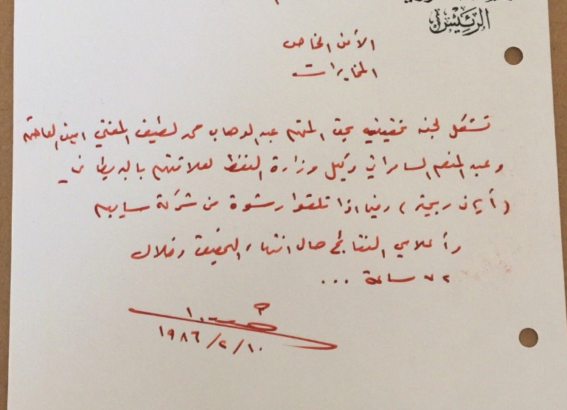 الرئيس
الأمن الخاص
المخابرات
تشكل لجنة تحقيقية بحق المتهم عبد الوهاب محمد لطيف المفتي امين العاصمة
وعبد المنعم السامرائي وكيل وزارة النفط لعلاقتهم بالبريطاني
(أيان ريختر) وفيما اذا تلقوا رشوة من شركة سايبم
وأعلامي النتائج حال انتهاء التحقيق وخلال
٧٢ ساعة ...
١٩٨٦/٢/١٠